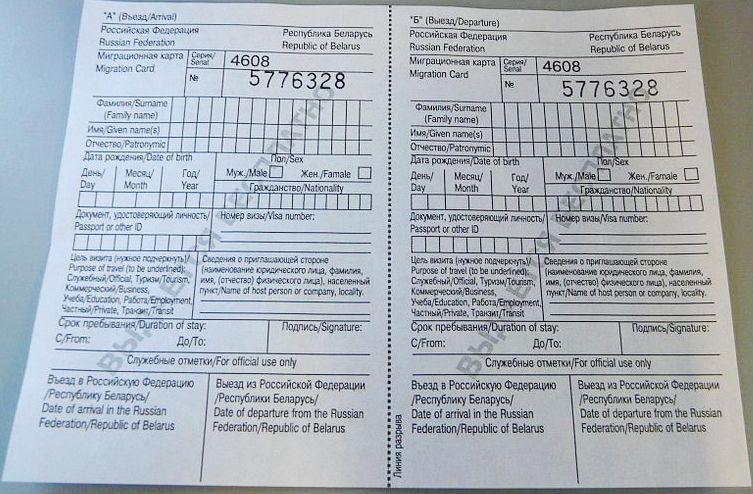 "А" (Въезд/Arrival)
Российская Федерация Республика Беларусь
Russian Federation Republic of Belarus
Миграционная карта Серия/ 4608
Migration Card Serial
№ 5776328
Фамилия/Surname
(Family name)
Имя/Given name(s)
Отчество/Patronymic
Дата рождения/Date of birth Пол/Sex
День/ Месяц/ Год/ Муж./Male Жен./Famale
Day Month Year Гражданство/Nationality
Документ, удостоверяющий личность/ Номер визы/Visa number:
Passport or other ID
Цель визита (нужное подчеркнуть)/ Сведения о приглашающей стороне
Purpose of travel (to be underlined): (наименование юридического лица, фамилия,
Служебный/Official, Туризм/Tourism, имя, (отчество) физического лица), населенный
Коммерческий/Business, пункт/Name of host person or company, locality.
Учеба/Education, Работа/Employment,
Частный/Private, Транзит/Transit
Срок пребывания/Duration of stay: Подпись/Signature:
С/From: До/To:
Служебные отметки/For official use only
Въезд в Российскую Федерацию Выезд из Российской Федерации
/Республику Беларусь/ /Республики Беларусь/
Date of arrival in the Russian Date of departure from the Russian
Federation/Republic of Belarus Federation/Republic of Belarus
ВЫДАЕТСЯ БЕСПЛАТНО
Линия разрыва
"Б" (Выезд/Departure)
Российская Федерация Республика Беларусь
Russian Federation Republic of Belarus
Миграционная карта Серия/ 4608
Migration Card Serial
№ 5776328
Фамилия/Surname
(Family name)
Имя/Given name(s)
Отчество/Patronymic
Дата рождения/Date of birth Пол/Sex
День/ Месяц/ Год/ Муж./Male Жен./Famale
Day Month Year Гражданство/Nationality
Документ, удостоверяющий личность/ Номер визы/Visa number:
Passport or other ID
Цель визита (нужное подчеркнуть)/ Сведения о приглашающей стороне
Purpose of travel (to be underlined): (наименование юридического лица, фамилия,
Служебный/Official, Туризм/Tourism, имя, (отчество) физического лица), населенный
Коммерческий/Business, пункт/Name of host person or company, locality.
Учеба/Education, Работа/Employment,
Частный/Private, Транзит/Transit
Срок пребывания/Duration of stay: Подпись/Signature:
С/From: До/To:
Служебные отметки/For official use only
Въезд в Российскую Федерацию Выезд из Российской Федерации
/Республику Беларусь/ /Республики Беларусь/
Date of arrival in the Russian Date of departure from the Russian
Federation/Republic of Belarus Federation/Republic of Belarus
ВЫДАЕТСЯ БЕСПЛАТНО